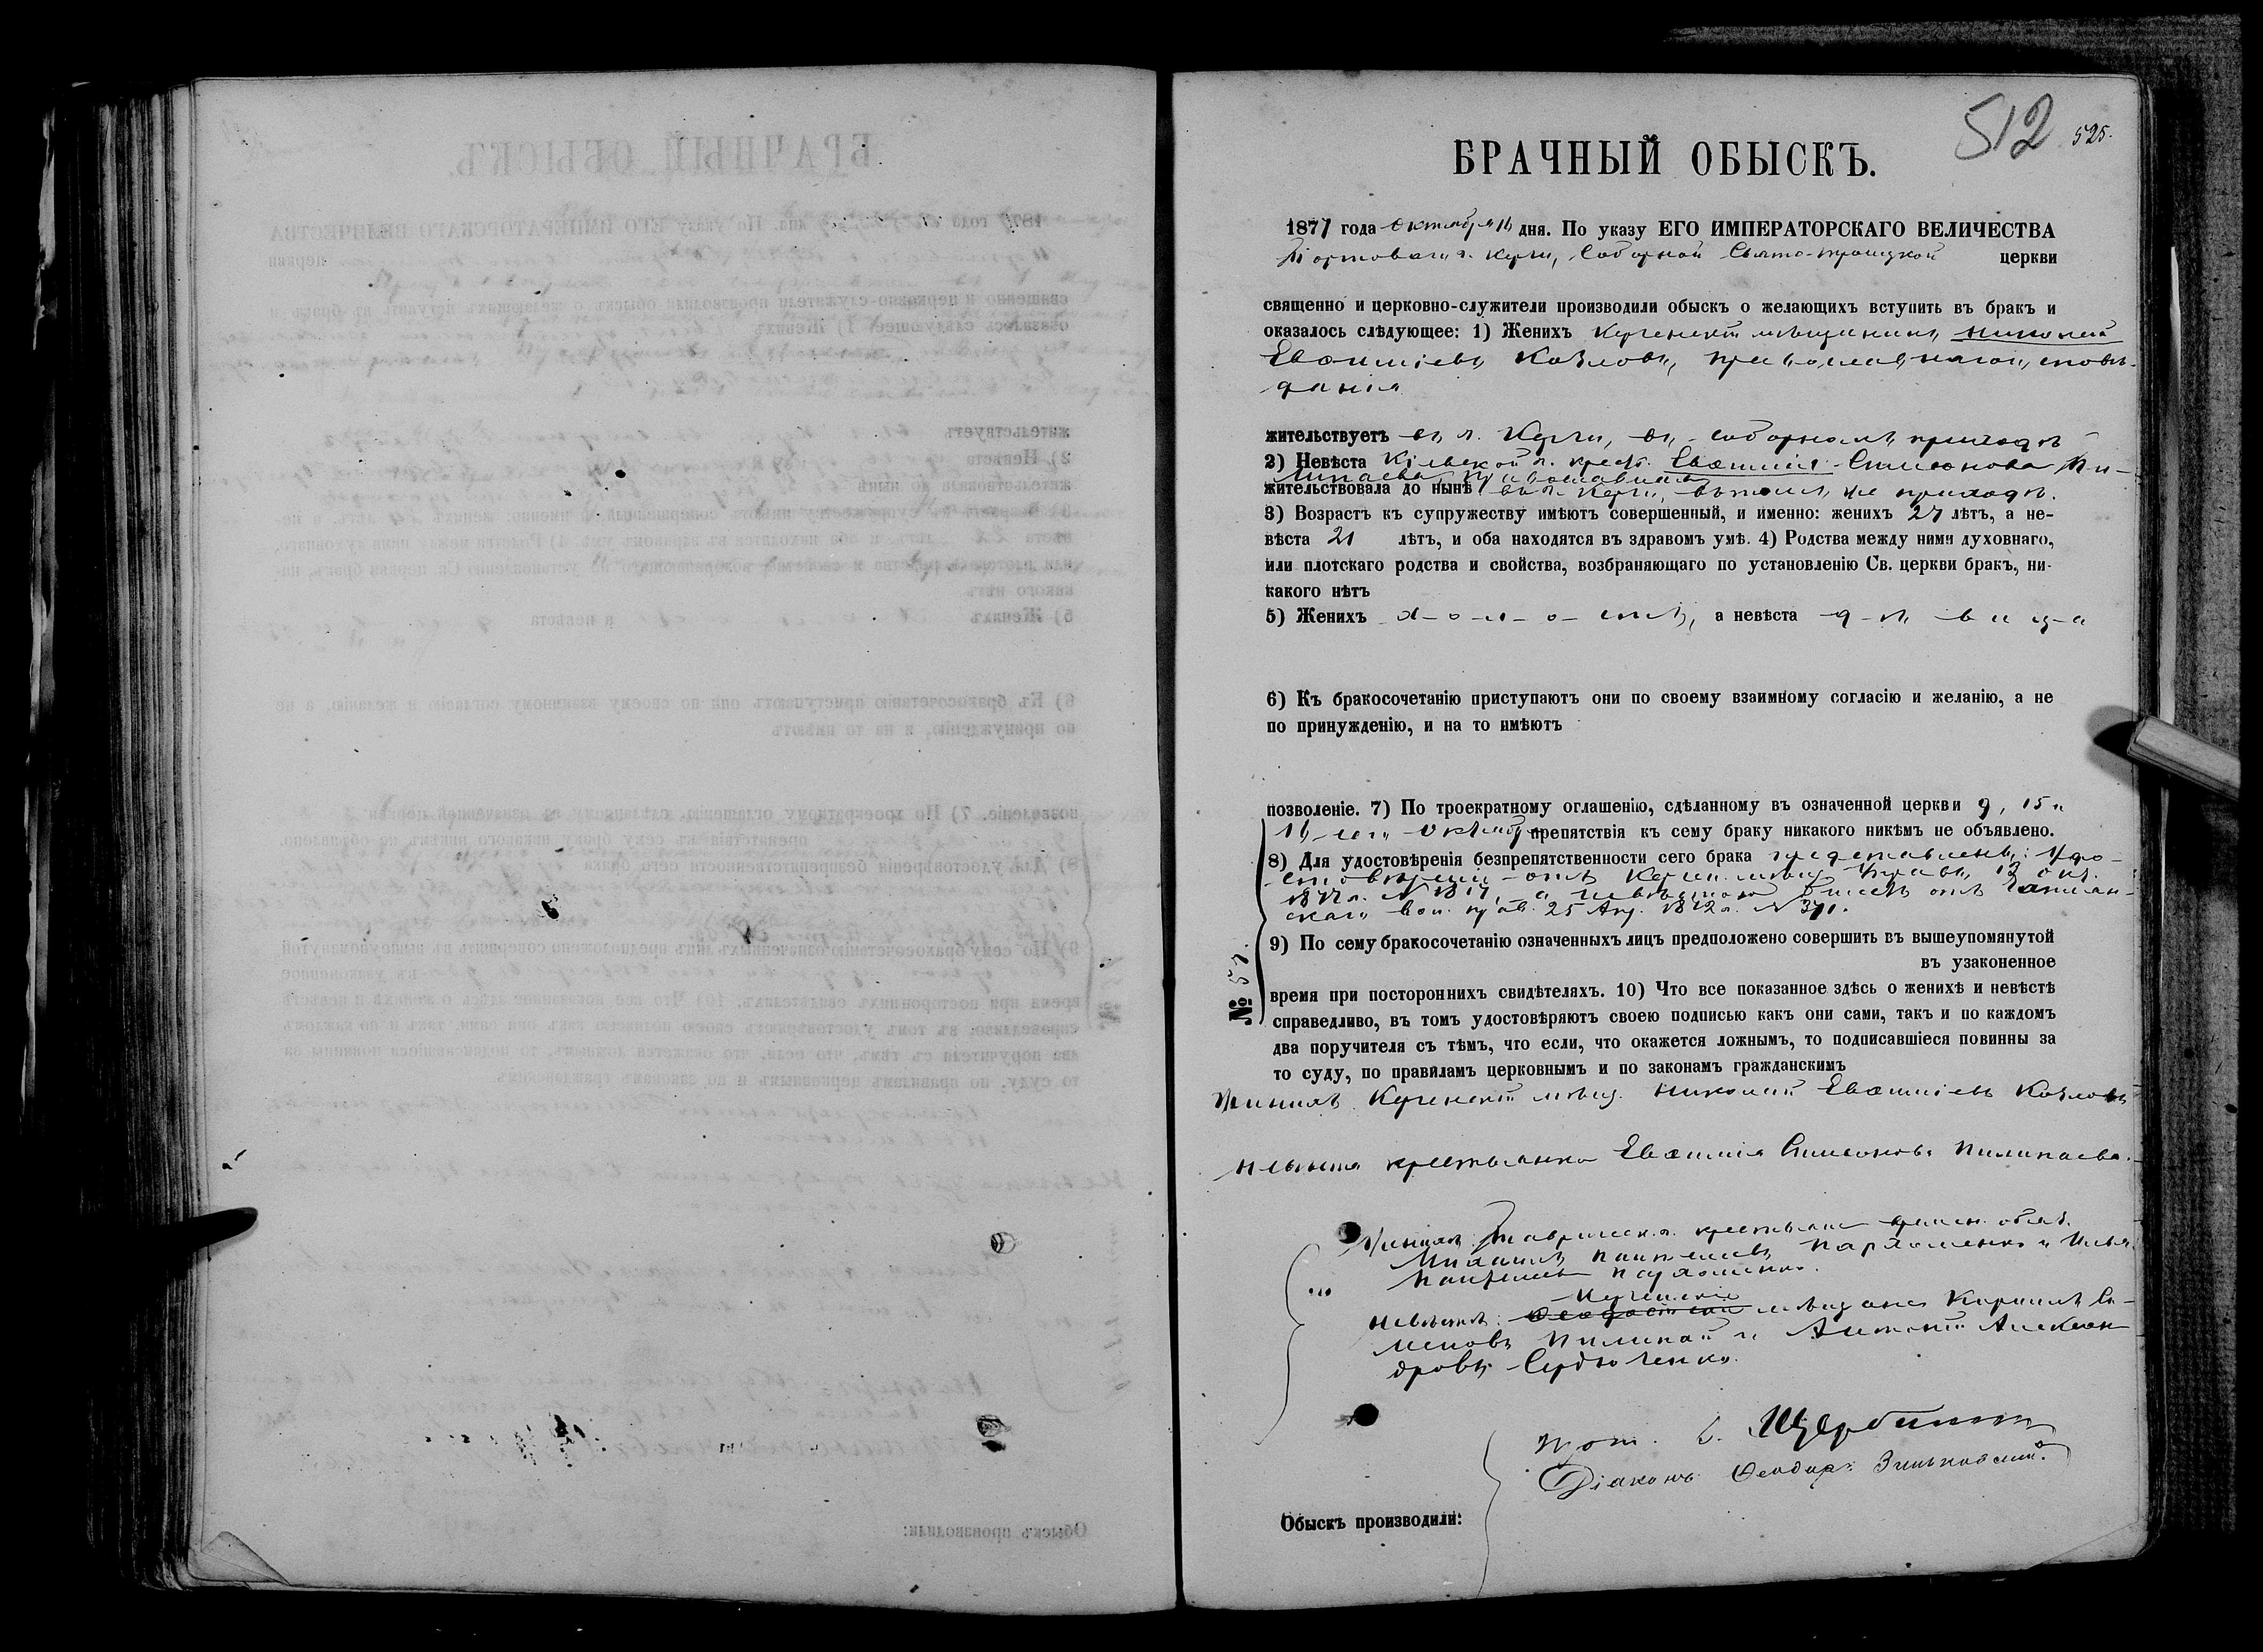 512 525.
БРАЧНЫЙ ОБЫСКЪ.
1877 года Октября 16 дня. По указу ЕГО ИМПЕРАТОРСКАГО ВЕЛИЧЕСТВА
Портоваго г. Керчи, Соборной Свято-Троицкой церкви
священно и церковно-служители производили обыскъ о желающихъ вступить въ бракъ и
оказалось слѣдующее: 1) Женихъ Керченскій мѣщанинъ Николай
Евѳиміевъ Козловъ, православнаго исповѣ-
данія
жительствуетъ въ г. Керчи, въ соборномъ приходѣ
2) Невѣста г. крест. Евѳимія Симеонова Пи-
липаева, православная
жительствовала до нынѣ въ г. Керчи, въ томъ же приходѣ.
3) Возрастъ къ супружеству имѣютъ совершенный, и именно: женихъ 27 лѣтъ, а не-
вѣста 21 лѣтъ, и оба находятся въ здравомъ умѣ. 4) Родства между ними духовнаго,
или плотскаго родства и свойства, возбраняющаго по установленію Св. церкви бракъ, ни-
какого нѣтъ
5) Женихъ х-о-л-о-стъ, а невѣста д-ѣ-в и ц-а
6) Къ бракосочетанію приступаютъ они по своему взаимному согласію и желанію, а не
по принужденію, и на то имѣютъ
позволеніе. 7) По троекратному оглашенію, сдѣланному въ означенной церкви 9, 15 и
16-го Октября препятствія къ сему браку никакого никѣмъ не объявлено.
8) Для удостовѣренія безпрепятственности сего брака представлены: Удо-
стовѣреніе отъ Керчен. мѣщ. Управы 13 окт.
1877 г. № а невѣстою билетъ отъ
скаго вол. прав. 25 Апр. №
9) По сему бракосочетанію означенныхъ лицъ предположено совершить въ вышеупомянутой
въ узаконенное
время при постороннихъ свидѣтеляхъ. 10) Что все показанное здѣсь о женихѣ и невѣстѣ
справедливо, въ томъ удостовѣряютъ своею подписью какъ они сами, такъ и по каждомъ
два поручителя съ тѣмъ, что если, что окажется ложнымъ, то подписавшіеся повинны за
то суду, по правиламъ церковнымъ и по законамъ гражданскимъ
№ 57.
Женихъ Керченскій мѣщ. Николай Евѳиміевъ Козловъ
Невѣста крестьянка Евѳимія Симеонова Пилипаева.
Женихъ: Тавричес. г. крестьяне
Михаилъ Пантелеевъ Пархоменко и Илья
Пантелеевъ Пархоменко.
Керченскіе
Невѣстѣ: мѣщане Кириллъ Си-
меоновъ Пилипай и Алексѣй Алексан-
дровъ Сердюченко.
Прот. Щербина
Діаконъ Ѳеодоръ Зиньковскій.
Обыскъ производили: